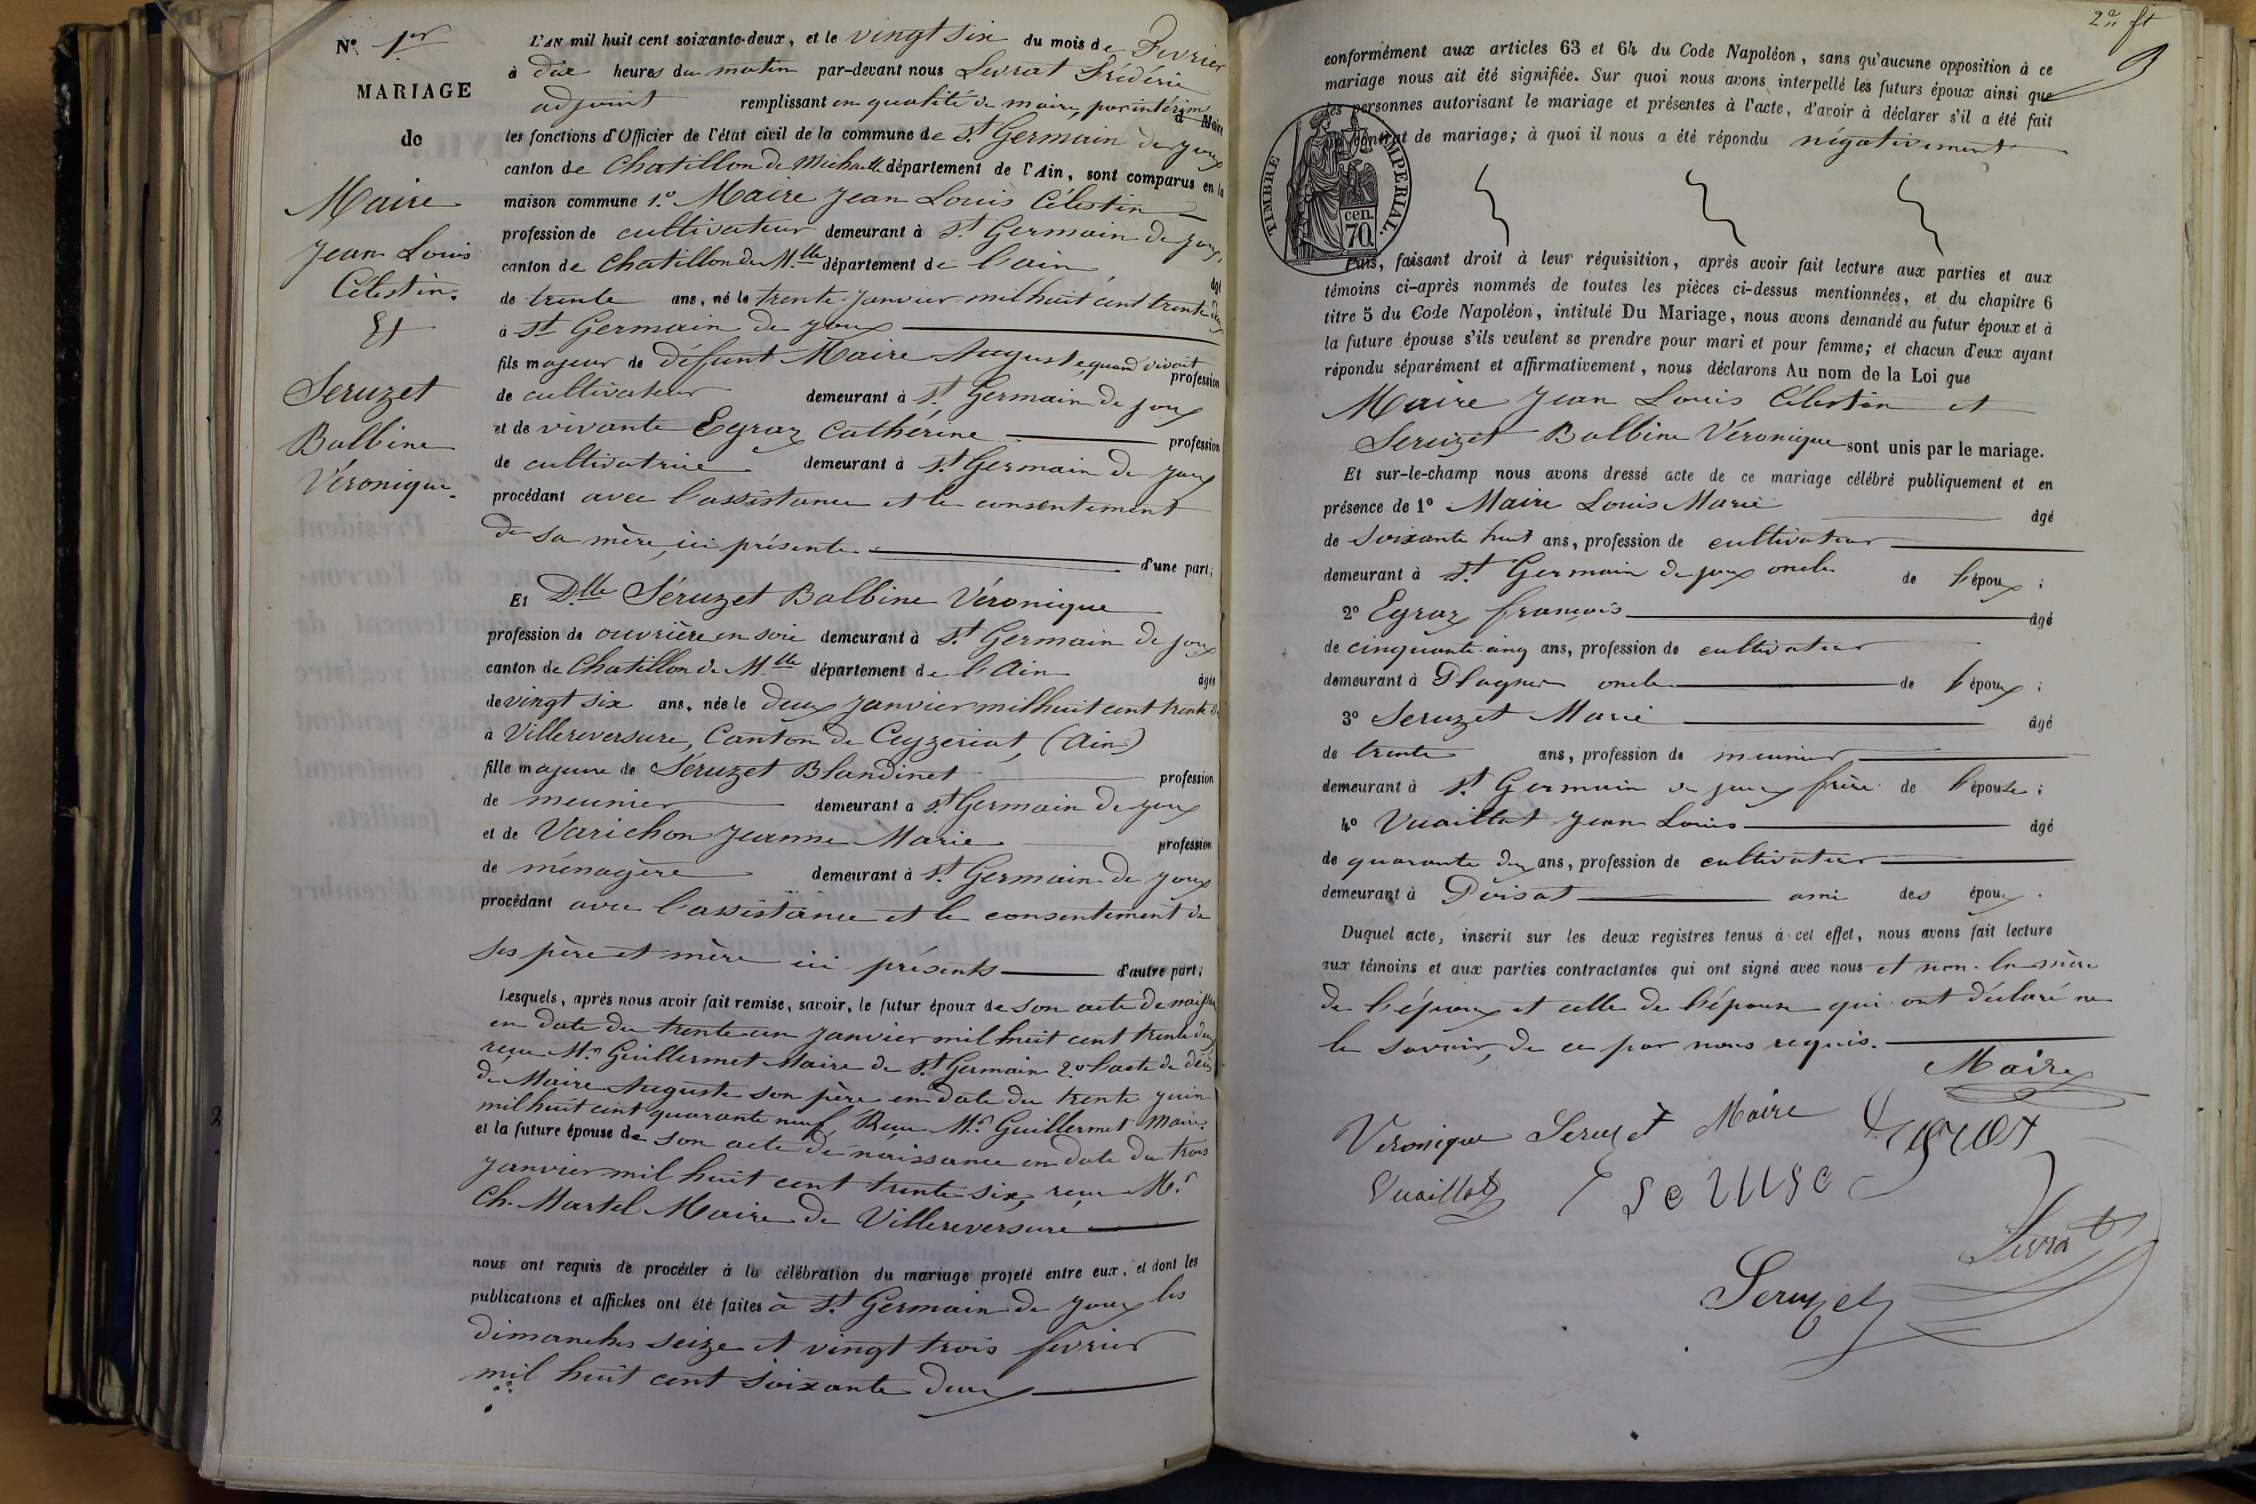 N° 1er
MARIAGE
de
Maire
Jean Louis
Célestin.
Et
Seruzet
Balbine
Véronique.
L'AN mil huit cent soixante-deux, et le vingt six du mois de Fevrier
à dix heures du matin par-devant nous Livrat Frédéric
adjoint remplissant en qualité de maire, par intérim
les fonctions d'Officier de l'état civil de la commune de St Germain de joux
canton de Chatillon de Michaille département de l'Ain, sont comparus en la
maison commune 1.° Maire Jean Louis Célestin
profession de cultivateur demeurant à St Germain de joux,
canton de Chatillon de M.lle département de l'ain âgé
de trente ans, né le trente janvier mil huit cent trente deux
à St Germain de joux
fils majeur de défunt Maire Auguste quand vivait profession
de cultivateur demeurant à St Germain de joux
et de vivante Egraz Cathérine profession
de cultivatrice demeurant à St Germain de joux
procédant avec l'assistance et le consentement
de sa mère, ici présente d'une part;
Et Dlle Séruzet Balbine Véronique
profession de ouvrière en soie demeurant à St Germain de joux
canton de Chatillon de M.lle département de l'Ain âgée
de vingt six ans, née le deux janvier mil huit cent trente six
à Villereversure, Canton de Ceyzeriat, (Ain)
fille majeure de Séruzet Blandinet profession
de meunier demeurant à St Germain de joux
et de Varichon Jeanne Marie profession
de ménagère demeurant à St Germain de joux
procédant avec l'assistance et le consentement de
ses père et mère ici présents d'autre part;
Lesquels, après nous avoir fait remise, savoir, le futur époux de son acte de naissance
en date du trente un janvier mil huit cent trente deux
reçu Mr Guillermet Maire de St Germain 2.° l'acte de décès
de Maire Auguste son père en date du trente juin
mil huit cent quarante neuf, Reçu Mr Guillermet Maire,
et la future épouse de son acte de naissance en date du trois
janvier mil huit cent trente six, reçu Mr
Ch. Martel Maire de Villereversure
nous ont requis de procéder à la célébration du mariage projeté entre eux, et dont les
publications et affiches ont été faites à St Germain de joux les
dimanches seize et vingt trois février
mil huit cent soixante deux
conformément aux articles 63 et 64 du Code Napoléon, sans qu'aucune opposition à ce
mariage nous ait été signifiée. Sur quoi nous avons interpellé les futurs époux ainsi que
les personnes autorisant le mariage et présentes à l'acte, d'avoir à déclarer s'il a été fait
contrat de mariage; à quoi il nous a été répondu négativement
TIMBRE IMPERIAL.
cen.
70.
Puis, faisant droit à leur réquisition, après avoir fait lecture aux parties et aux
témoins ci-après nommés de toutes les pièces ci-dessus mentionnées, et du chapitre 6
titre 5 du Code Napoléon, intitulé Du Mariage, nous avons demandé au futur époux et à
la future épouse s'ils veulent se prendre pour mari et pour femme; et chacun d'eux ayant
répondu séparément et affirmativement, nous déclarons Au nom de la Loi que
Maire Jean Louis Célestin et
Séruzet Balbine Véronique sont unis par le mariage.
Et sur-le-champ nous avons dressé acte de ce mariage célébré publiquement et en
présence de 1° Maire Louis Marie âgé
de soixante huit ans, profession de cultivateur
demeurant à St Germain de joux oncle de l'époux;
2° Egraz françois âgé
de cinquante cinq ans, profession de cultivateur
demeurant à Plagnes oncle de l'époux;
3° Seruzet Marie âgé
de trente ans, profession de meunier
demeurant à St Germain de joux frère de l'épouse;
4° Vuaillat Jean Louis âgé
de quarante deux ans, profession de cultivateur
demeurant à Poisat ami des époux.
Duquel acte, inscrit sur les deux registres tenus à cet effet, nous avons fait lecture
aux témoins et aux parties contractantes qui ont signé avec nous et non la mère
de l'époux et celle de l'épouse qui ont déclaré ne
le savoir, de ce par nous requis.
Maire
Véronique Seruzet Maire
Vuaillat
Livrat
Seruzet